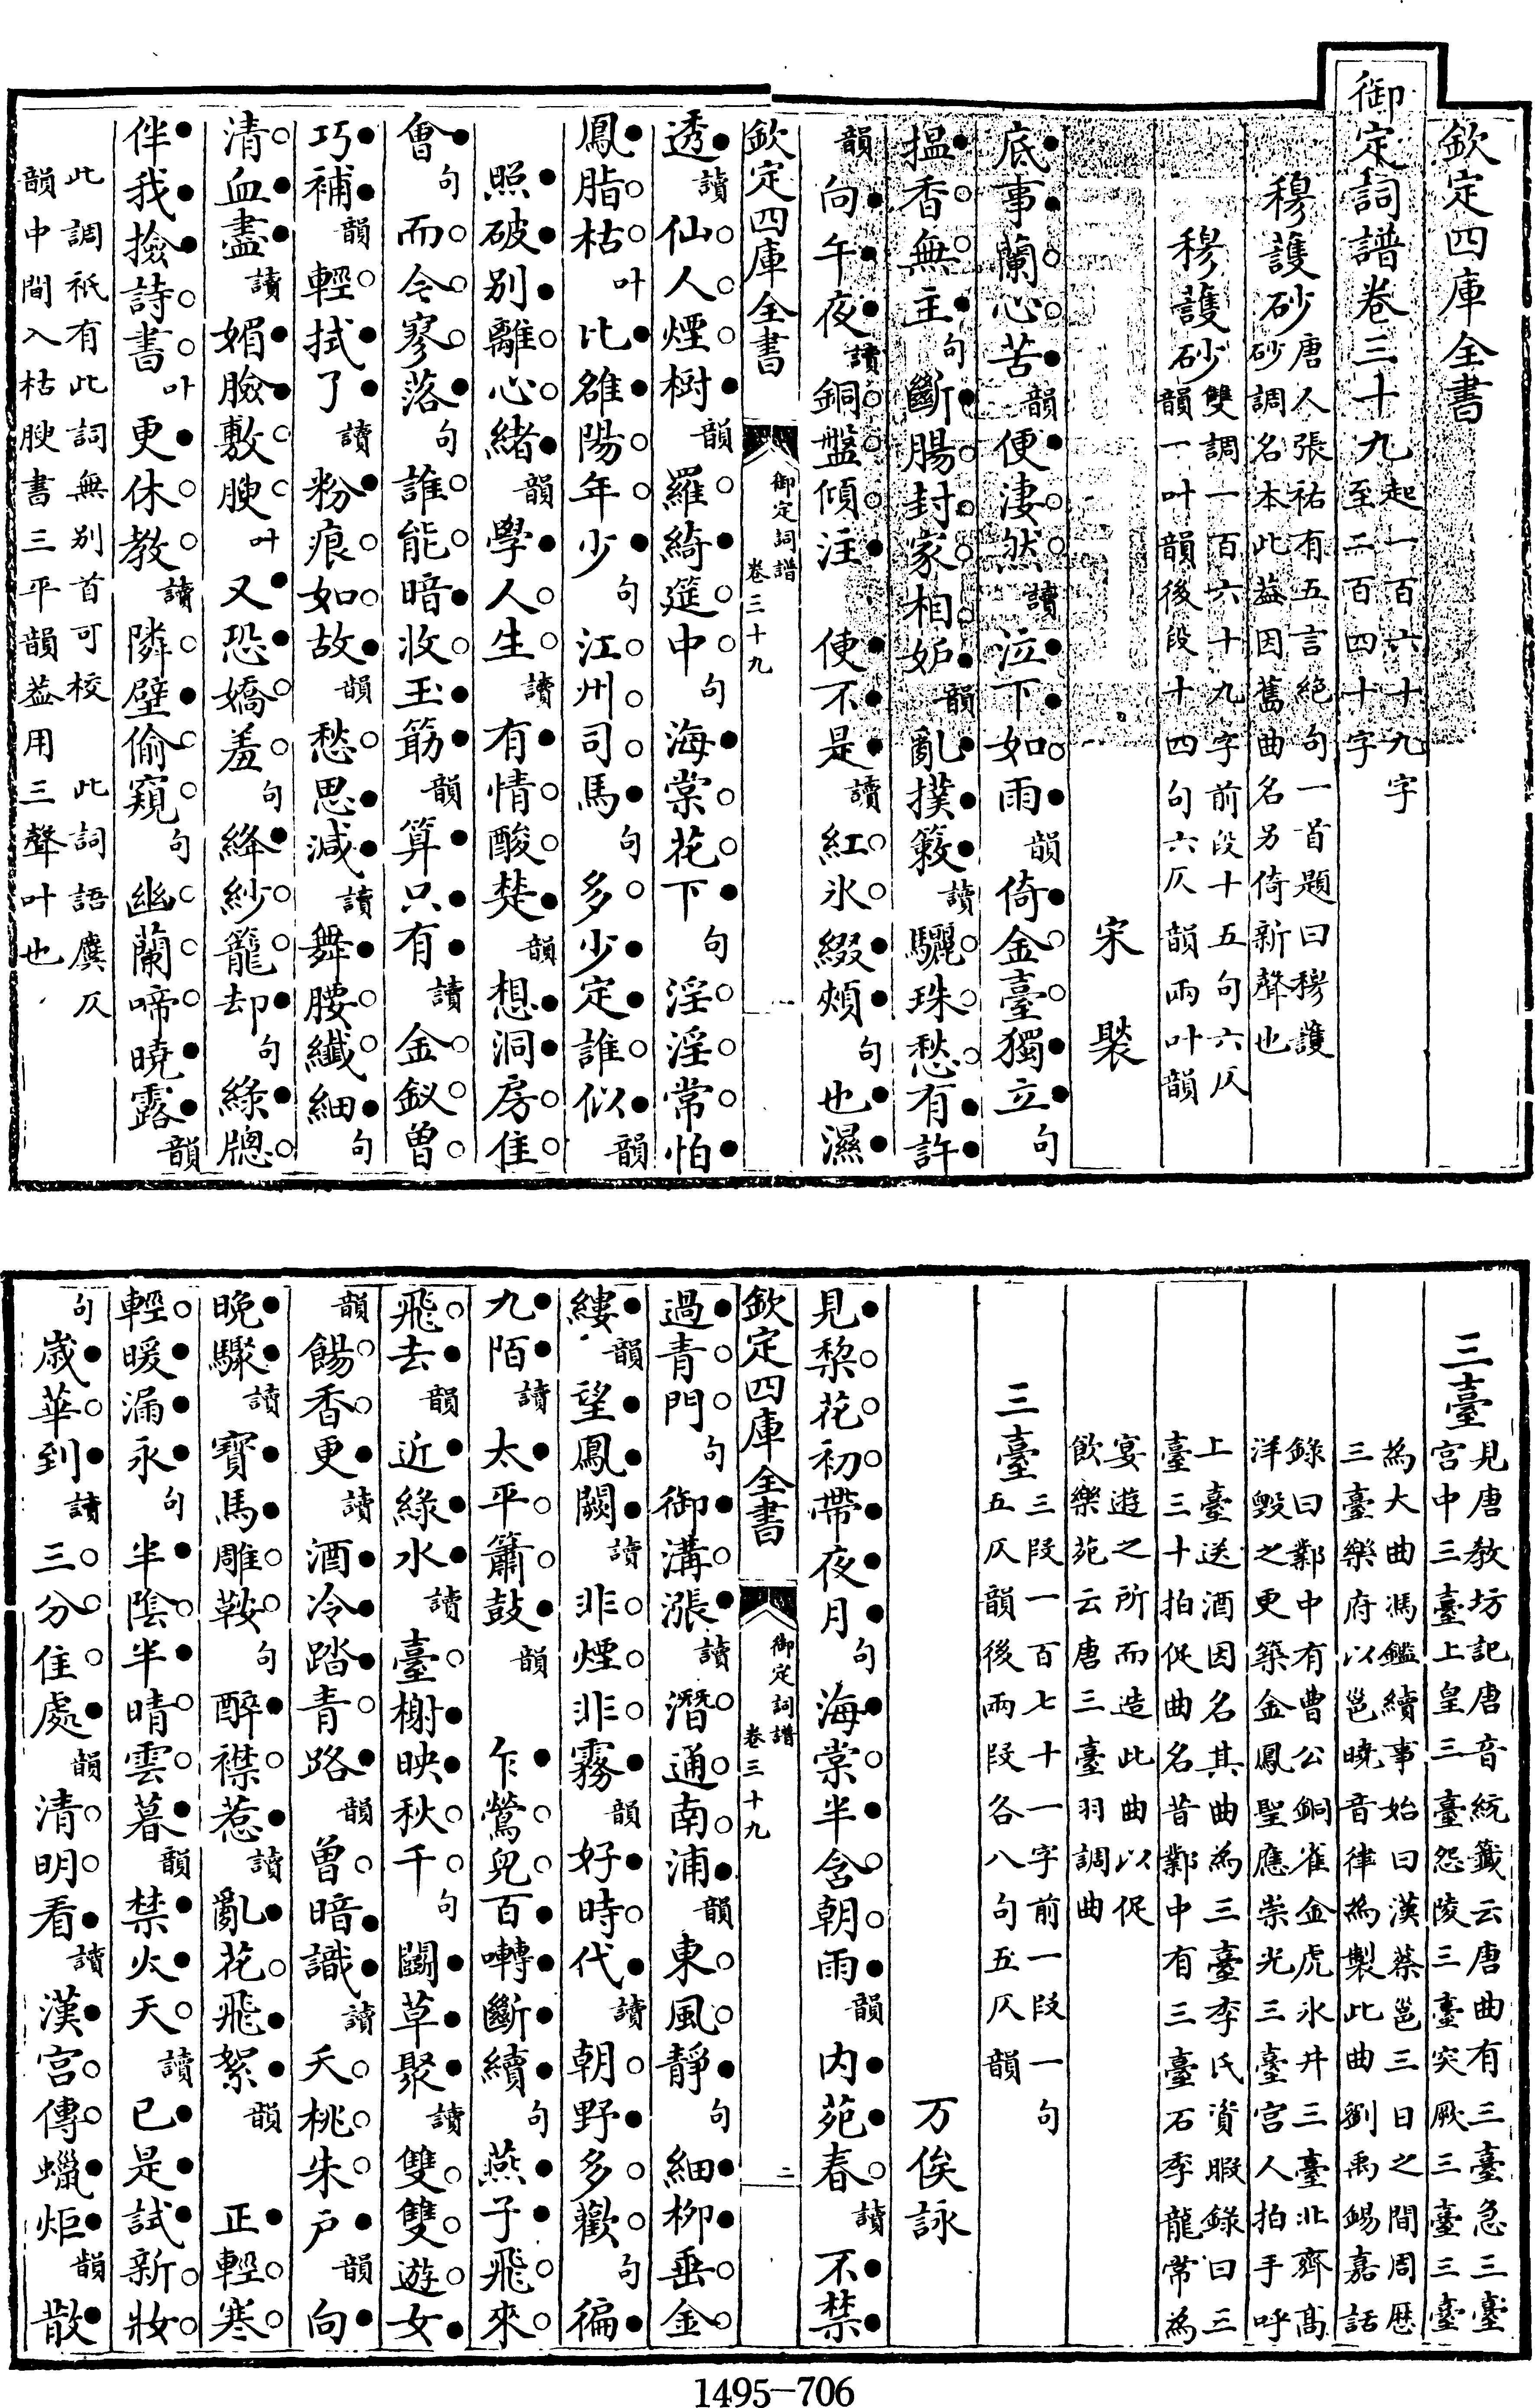 欽定四庫全書
御定詞譜卷三十九起一百六十九字至二百四十字
穆護砂唐人張祜有五言絶句一首題曰穆護砂調名本此葢因舊曲名另倚新聲也
穆護砂雙調一百六十九字前段十五句六仄韻一叶韻後段十四句六仄韻兩叶韻
宋褧
底●事●蘭○心○苦●韻便●淒○然○讀泣●下●如○雨●韻倚●金○臺○獨●立●句
揾●香○無○主●句斷●腸○封○家○相○妬●韻亂●撲●簌●讀驪○珠○愁○有●許●
韻向●午●夜●讀銅○盤○傾○注●使●不●是●讀紅○氷○綴●頰●句也●濕●
欽定四庫全書
御定詞譜卷三十九
一
透●讀仙○人○煙○樹●韻羅○綺●筵○中○句海●棠○花○下●句淫○淫○常○怕●
鳳●脂○枯○叶比●雒●陽○年○少●句江○州○司○馬●句多○少●定●誰○似●韻
照●破●别●離○心○緒●韻學●人○生○讀有●情○酸○楚●韻想●洞●房○佳○
會●句而○今○寥○落●句誰○能○暗●收○玉●筯●韻算●只●有●讀金○釵○曽○
巧●補●韻輕○拭●了●讀粉●痕○如○故●韻愁○思●減●讀舞●腰○纖○細●句
清○血●盡●讀媚●臉●敷○腴○叶又●恐●嬌○羞○句絳●紗○籠○却●句緑●牕○
伴●我●撿●詩○書○叶更●休○教○讀隣○壁●偷○窺○句幽○蘭○啼○曉●露●韻
此調祇有此詞無别首可校　此詞語虞仄
韻中間入枯腴書三平韻葢用三聲叶也
三臺見唐教坊記唐音統籖云唐曲有三臺急三臺宫中三臺上皇三臺怨陵三臺突厥三臺三臺
為大曲馮鑑續事始曰漢蔡邕三日之間周歴三臺樂府以邕曉音律為製此曲劉禹錫嘉話
錄曰鄴中有曹公銅雀金虎氷井三臺北齊髙洋毁之更築金鳳聖應崇光三臺宫人拍手呼
上臺送酒因名其曲為三臺李氏資暇錄曰三臺三十拍促曲名昔鄴中有三臺石季龍常為
宴遊之所而造此曲以促飲樂苑云唐三臺羽調曲
三臺三段一百七十一字前一段一句五仄韻後兩段各八句五仄韻
万俟詠
見●棃○花○初○帶●夜●月●句海●棠○半●含○朝○雨●韻内●苑●春○讀不●禁●
欽定四庫全書
御定詞譜卷三十九
二
過●青○門○句御●溝○漲●讀潛○通○南○浦●韻東○風○静●句細●柳●垂○金○
縷●韻望●鳳●闕●讀非○煙○非○霧●韻好●時○代●讀朝○野●多○歡○句徧●
九●陌●讀太●平○簫○鼓●韻乍●鶯○兒○百●囀●斷●續●句燕●子●飛○來○
飛○去●韻近●緑●水●讀臺○榭●映●秋○千○句鬭●草●聚●讀雙○雙○遊○女●
韻餳○香○更●讀酒●冷●踏●青○路●韻曽○暗●識●讀夭○桃○朱○户●韻向●
晩●驟●讀寳●馬●雕○鞍○句醉●襟○惹●讀亂●花○飛○絮●韻正●輕○寒○
輕○暖●漏●永●句半●陰○半●晴○雲○暮●韻禁●火●天○讀已●是●試●新○妝○
句歲●華○到●讀三○分○佳○處●韻清○明○看●讀漢●宫○傳○蠟●炬●韻散●
1495—706